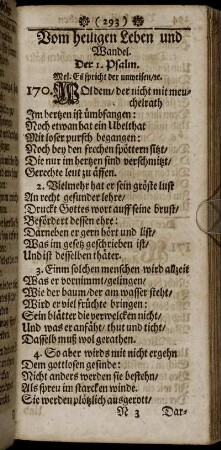 (293)
Vom heiligen Leben und
Wandel.
Der 1. Psalm.
Mel. Es spricht der unweisen/ꝛc.
170. WOldem/ der nicht mit meu-
chelrath
Im hertzen ist ümbfangen:
Noch etwan hat ein Ubelthat
Mit loser pursch begangen:
Noch bey den frechen spöttern sitzt/
Die nur im hertzen sind verschmitzt/
Gerechte leut zu äffen.
2. Vielmehr hat er sein gröste lust
An recht gesunder lehre/
Druckt Gottes wort auff seine brust/
Befördert dessen ehre:
Darneben er gern hört und list/
Was im gesetz geschrieben ist/
Und ist desselben thäter.
3. Einm solchen menschen wird allzeit
Was er vornimmt/gelingen/
Wie der baum/der am wasser steht/
Wird er viel früchte bringen:
Sein blätter die verwelcken nicht/
Und was er anfäht/ thut und ticht/
Dasselb muß wol gerathen.
4. So aber wirds mit nicht ergehn
Dem gottlosen gesinde:
Nicht anders werden sie bestehn/
Als spreu im starcken winde.
Sie werden plötzlich ausgerott/
N 3 Dar-